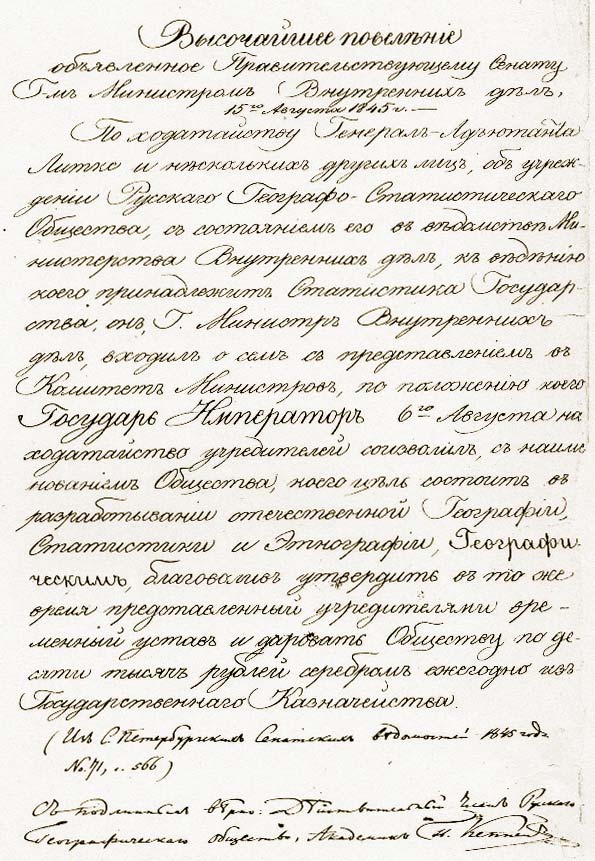 Высочайшее повелѣніе
объявленное Правительствующему Сенату
Г-мъ Министромъ Внутреннихъ дѣлъ,
15го Августа 1845 г. —
По ходатайству Генералъ-Адъютанта
Литке и нѣсколькихъ другихъ лицъ, объ учреж-
деніи Русскаго Географо-Статистическаго
Общества, съ состояніемъ его въ вѣдомствѣ Ми-
нистерства Внутреннихъ дѣлъ, къ вѣдѣнію
коего принадлежитъ Статистика Государ-
ства, онъ, Г. Министръ Внутреннихъ
дѣлъ, входилъ о семъ съ представленіемъ въ
Комитетъ Министровъ, по положенію коего
Государь Императоръ 6го Августа на
ходатайство учредителей соизволилъ, съ наиме
нованіемъ Общества, коего цѣль состоитъ въ
разработываніи отечественной Географіи,
Статистики и Этнографіи, Географи-
ческимъ, благоволивъ утвердить въ то же
время представленный учредителями вре-
менный уставъ и даровать Обществу по де-
сяти тысячъ рублей серебромъ ежегодно изъ
Государственнаго Казначейства.
(Изъ С. Петербургскихъ Сенатскихъ вѣдомостей 1845 года
No. 71, с. 566)
Съ подлиннымъ вѣрно: Дѣйствительный Членъ Русскаго
Географическаго общества, Академикъ П. Кеппенъ